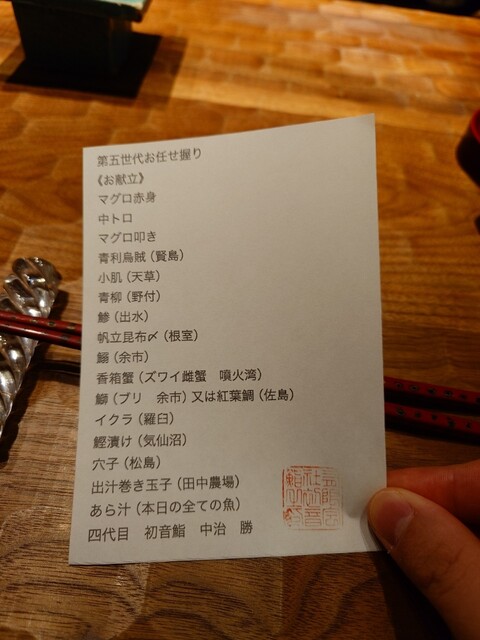 第五世代お任せ握り
《お献立》
マグロ赤身
中トロ
マグロ叩き
青利烏賊（賢島）
小肌（天草）
青柳（野付）
鯵（出水）
帆立昆布〆（根室）
鰯（余市）
香箱蟹（ズワイ雌蟹　噴火湾）
鰤（ブリ　余市）又は紅葉鯛（佐島）
イクラ（羅臼）
鰹漬け（気仙沼）
穴子（松島）
出汁巻き玉子（田中農場）
あら汁（本日の全ての魚）
四代目　初音鮨　中治　勝